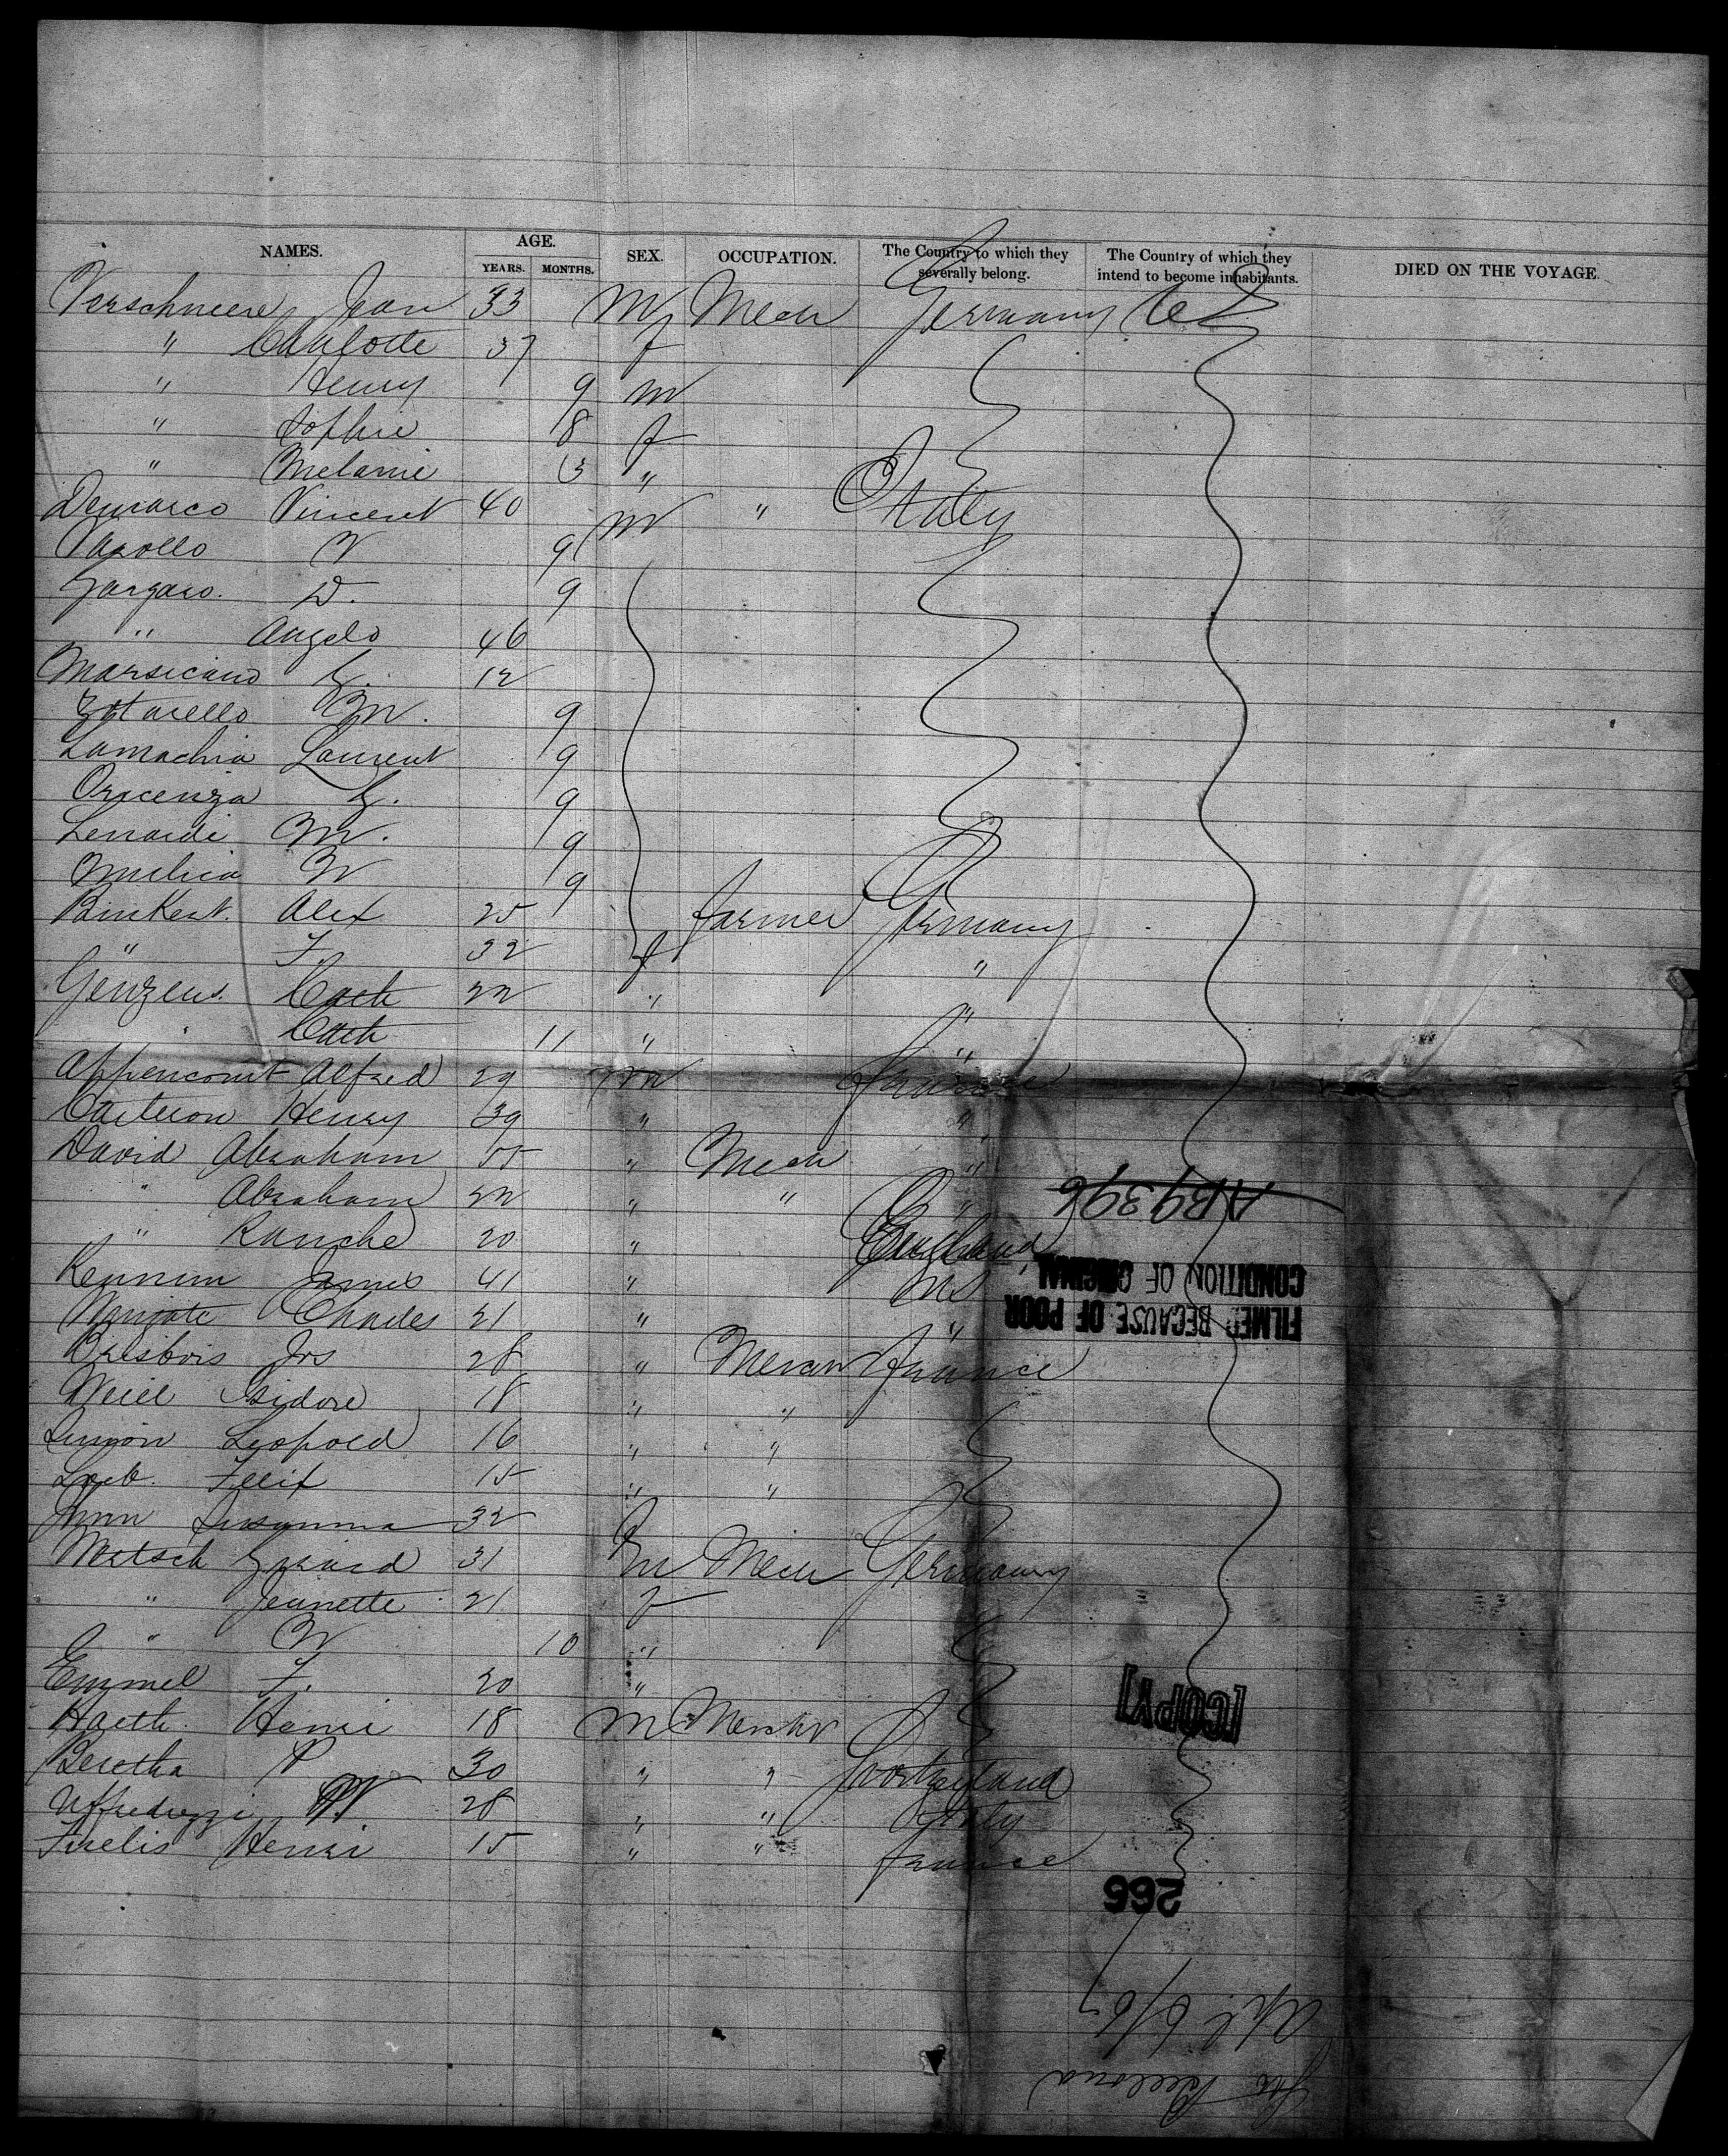 NAMES. AGE. SEX. OCCUPATION. The Country to which they severally belong. The Country of which they intend to become inhabitants. DIED ON THE VOYAGE.
YEARS. MONTHS.
Verschneere Jean 33 M Mech Germany US
" Charlotte 37 f
" Henry 9 m
" Sophie 8 f
" Melanie 3 "
Demarco Vincent 40 m " Italy
Vazollo V 9
Gargaro. D. 9
" Angelo 46
Marsicano G. 12
Zotarello M. 9
Lamachia Laurent 9
Oricenza G. 9
Lenardi M. 9
Amelica N 9
Binkert. Alex 25 farmer Germany
" F. 32 f "
Genzens. Cath 22 " "
" Cath 11 " "
Appencourt Alfred 29 m France
Carteron Henry 39 " "
David Abraham 55 " Mech "
" Abraham 22 " " "
" Ranche 20 " England
Kennim James 41 " US
Wingate Charles 21 " "
Brisbois Jos 28 " Merch France
Weill Isidore 18 " "
Simon Leopold 16 " "
Loeb. Felix 15 " "
Thim Susanna 32 f
Metsch Gerard 31 m Mech Germany
" Jeanette 21 f
" N 10 "
Emmel F. 20 "
Haeth. Henri 18 M Mercht
Beretha P 30 " " Switzerland
Uffreduzzi W. 28 " " Italy
Finelis Henri 15 " " France
AB9396
FILMED BECAUSE OF POOR
CONDITION OF ORIGINAL
[COPY]
266
Apl. 6/67
Str Bellona